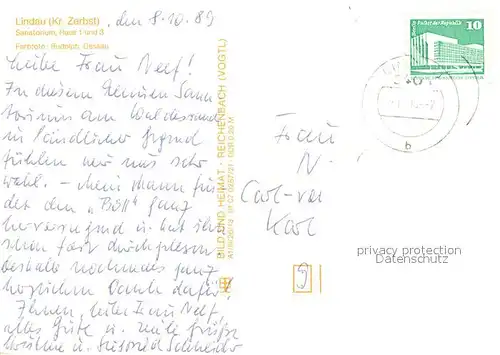 Lindau (Kr. Zerbst)
Sanatorium, Haus 1 und 3
Farbfoto: Rudolph, Dessau
, den 8.10.89
Liebe Frau Neef!
In diesem kleinen Sana
torium am Waldesrand
in ländlicher Gegend
fühlen wir uns sehr
wohl. – Mein Mann fin
det den „Böll“ ganz
hervorragend u. hat ihn
schon fast durchgelesen
deshalb nochmals ganz
herzlichen Dank dafür!
Ihnen, liebe Frau Neef,
alles Gute u. viele Grüße
u. Schneider
BILD UND HEIMAT · REICHENBACH (VOGTL)
10
Frau
N
Carl-von
Karl
9
privacy protection
Datenschutz
b